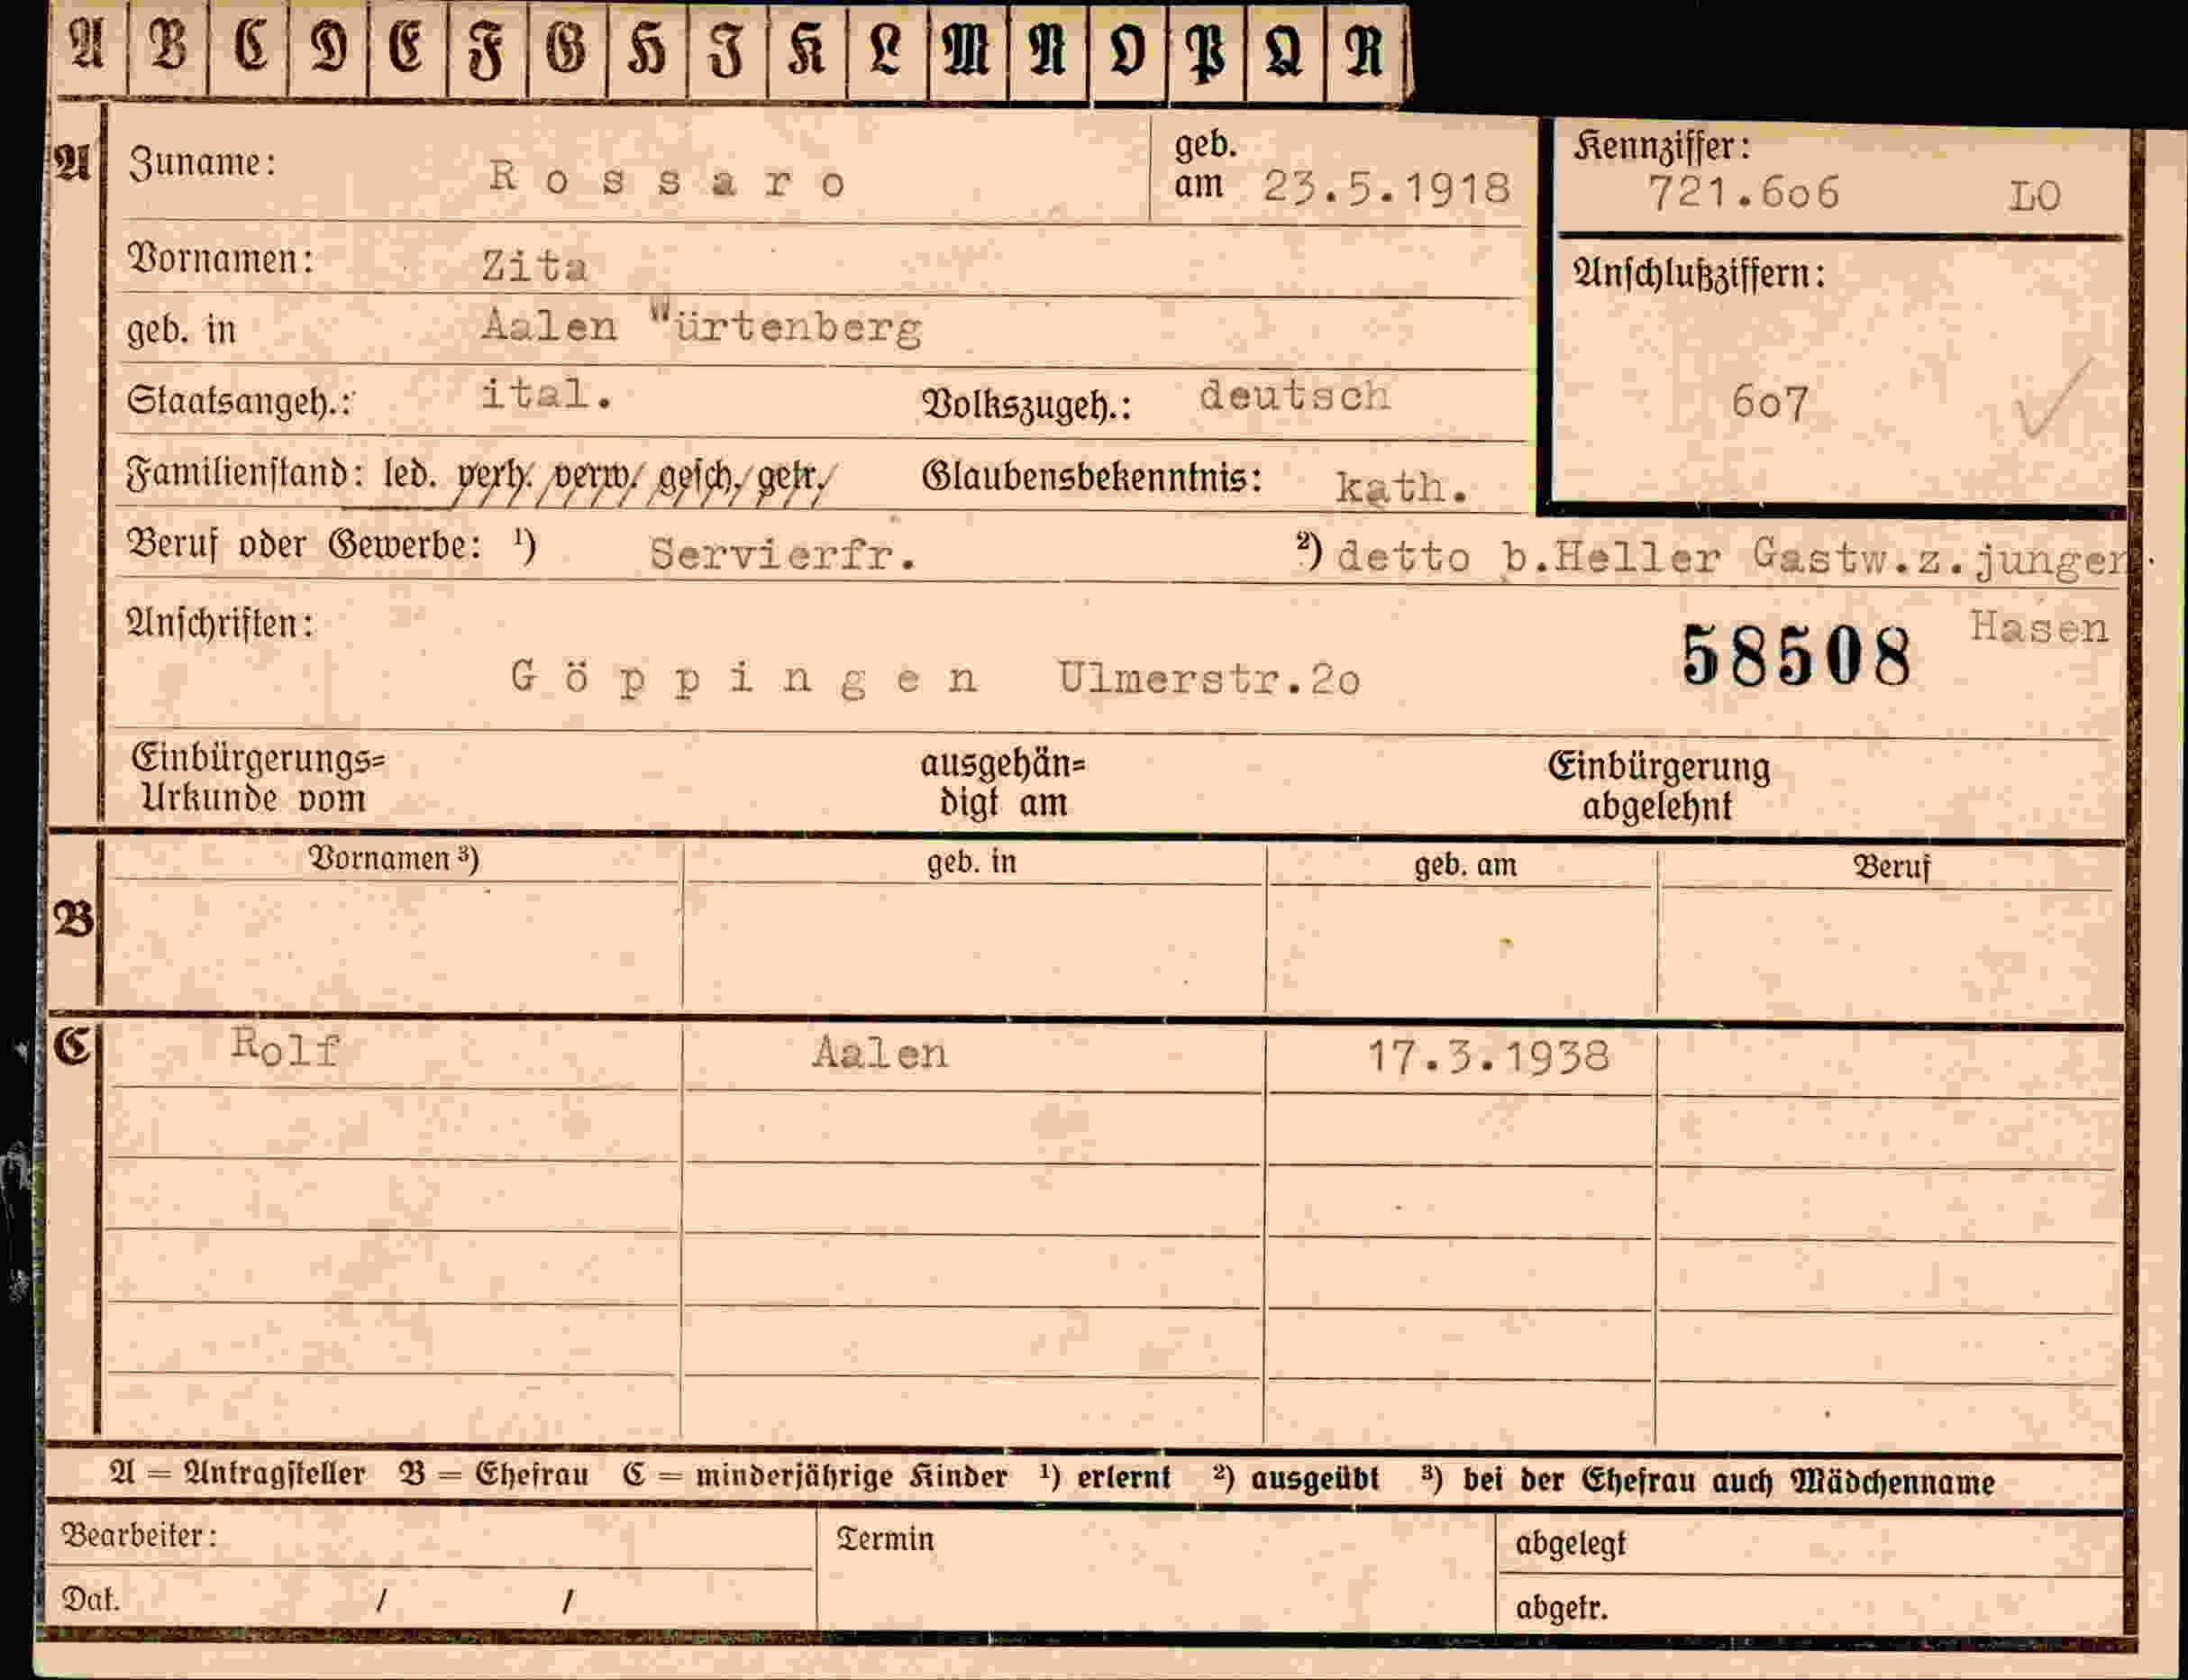 A B C D E F G H I K L M N O P Q R
A Zuname: Rossaro geb. am 23.5.1918 Kennziffer: 721.6o6 LO
Vornamen: Zita Anschlußziffern:
geb. in Aalen Würtenberg
Staatsangeh.: ital. Volkszugeh.: deutsch 6o7
Familienstand: led. verh. verw. gesch. getr. Glaubensbekenntnis: kath.
Beruf oder Gewerbe: ¹) Servierfr. ²) detto b.Heller Gastw.z.jungen
Anschriften: 58508 Hasen
Göppingen Ulmerstr.2o
Einbürgerungs= ausgehän= Einbürgerung
Urkunde vom digt am abgelehnt
Vornamen ³) geb. in geb. am Beruf
B
C Rolf Aalen 17.3.1938
A = Antragsteller B = Ehefrau C = minderjährige Kinder ¹) erlernt ²) ausgeübt ³) bei der Ehefrau auch Mädchenname
Bearbeiter: Termin abgelegt
Dat. / / abgetr.